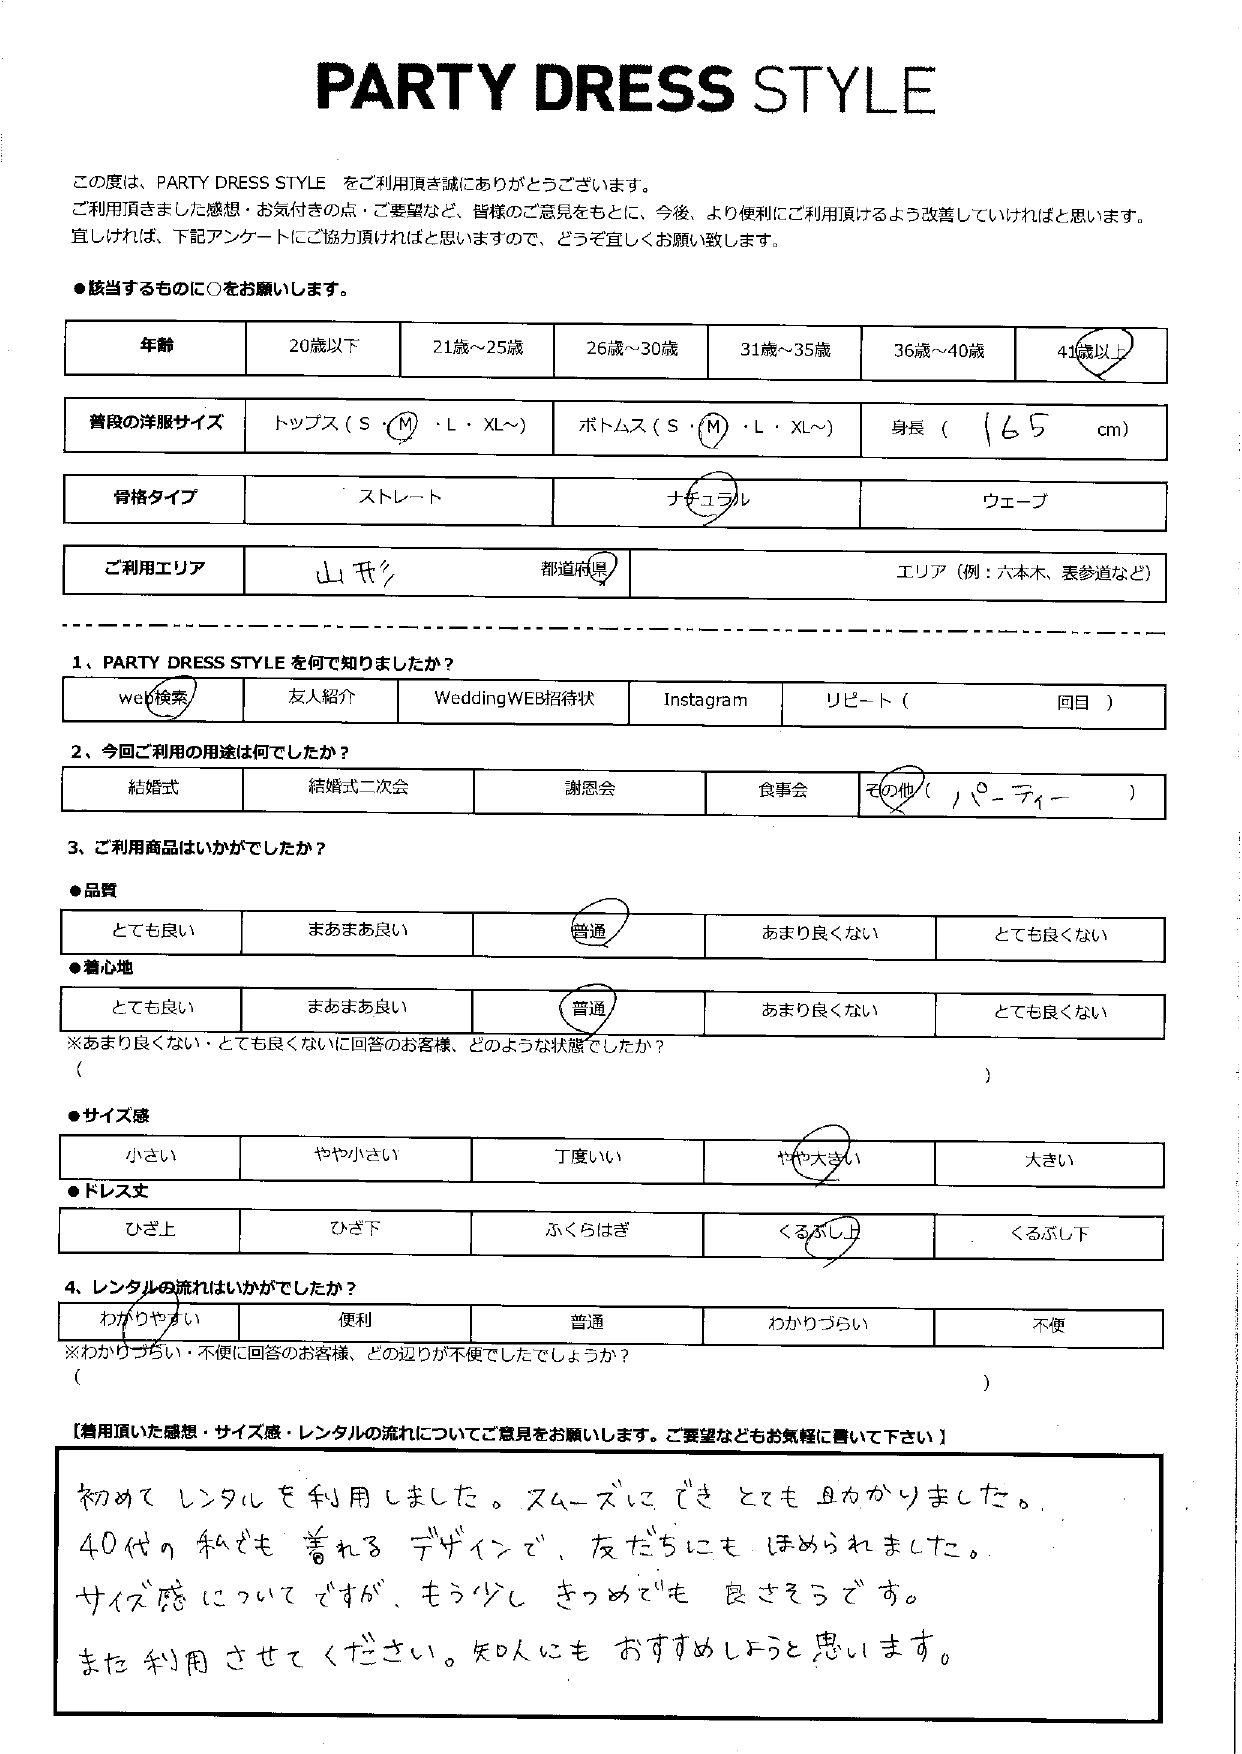 PARTY DRESS STYLE
この度は、PARTY DRESS STYLE をご利用頂き誠にありがとうございます。
ご利用頂きました感想・お気付きの点・ご要望など、皆様のご意見をもとに、今後、より便利にご利用頂けるよう改善していければと思います。
宜しければ、下記アンケートにご協力頂ければと思いますので、どうぞ宜しくお願い致します。
●該当するものに○をお願いします。
年齢 20歳以下 21歳～25歳 26歳～30歳 31歳～35歳 36歳～40歳 41歳以上
普段の洋服サイズ トップス ( S ・ M ・ L ・ XL～) ボトムス ( S ・ M ・ L ・ XL～) 身長 ( 165 cm)
骨格タイプ ストレート ナチュラル ウェーブ
ご利用エリア 山形 都道府県 エリア（例：六本木、表参道など）
1、PARTY DRESS STYLE を何で知りましたか？
web検索 友人紹介 WeddingWEB招待状 Instagram リピート ( 回目 )
2、今回ご利用の用途は何でしたか？
結婚式 結婚式二次会 謝恩会 食事会 その他 ( パーティー )
3、ご利用商品はいかがでしたか？
●品質
とても良い まあまあ良い 普通 あまり良くない とても良くない
●着心地
とても良い まあまあ良い 普通 あまり良くない とても良くない
※あまり良くない・とても良くないに回答のお客様、どのような状態でしたか？
( )
●サイズ感
小さい やや小さい 丁度いい やや大きい 大きい
●ドレス丈
ひざ上 ひざ下 ふくらはぎ くるぶし上 くるぶし下
4、レンタルの流れはいかがでしたか？
わかりやすい 便利 普通 わかりづらい 不便
※わかりづらい・不便に回答のお客様、どの辺りが不便でしたでしょうか？
( )
【着用頂いた感想・サイズ感・レンタルの流れについてご意見をお願いします。ご要望などもお気軽に書いて下さい】
初めてレンタルを利用しました。スムーズにできとても助かりました。
40代の私でも着れるデザインで、友だちにもほめられました。
サイズ感についてですが、もう少しきつめでも良さそうです。
また利用させてください。知人にもおすすめしようと思います。